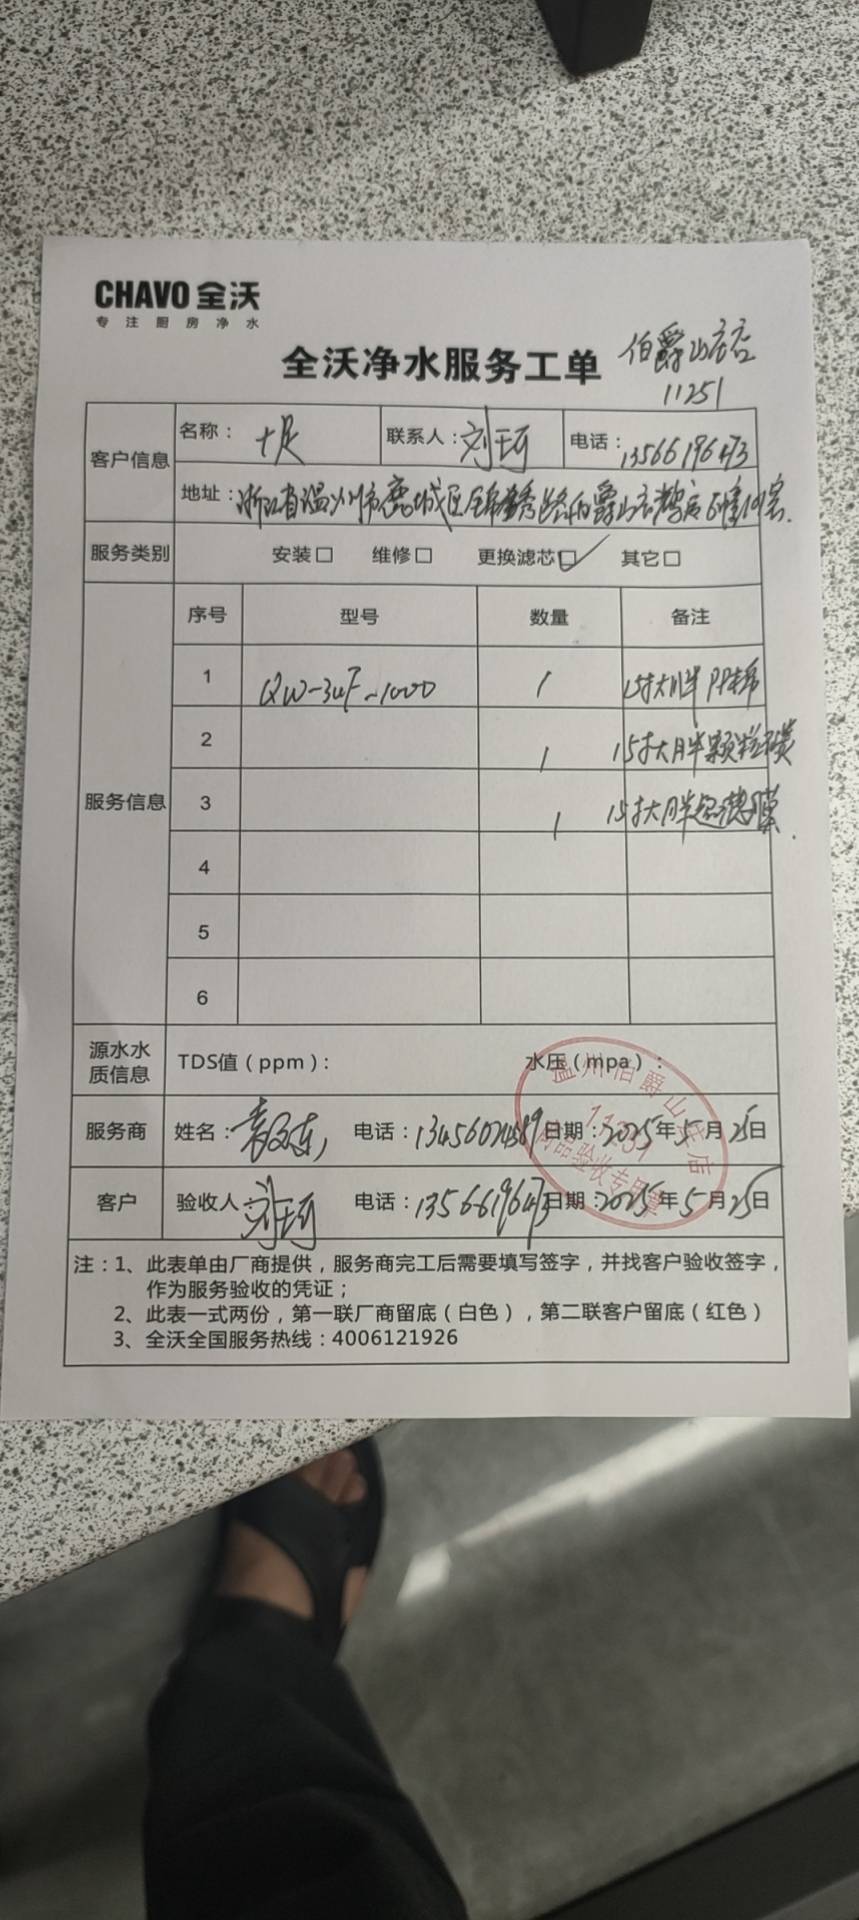 CHAVO 全沃
专注厨房净水
全沃净水服务工单 伯爵山庄店
11251
客户信息 名称： 十足 联系人：刘珂 电话：13566196473
地址：浙江省温州市鹿城区锦绣路伯爵山庄
服务类别 安装□ 维修□ 更换滤芯☑ 其它□
服务信息 序号 型号 数量 备注
1 QW-3UF-1000 1 15寸大胖PP棉
2 1 15寸大胖颗粒碳
3 1 15寸大胖超滤膜
4
5
6
源水水质信息 TDS值（ppm）： 水压（mpa）：
服务商 姓名： 电话： 日期：2025年5月25日
客户 验收人 刘珂 电话：13566196473 日期：2025年5月25日
温州伯爵山庄店
11251
商品验收专用章
注：1、此表单由厂商提供，服务商完工后需要填写签字，并找客户验收签字，
作为服务验收的凭证；
2、此表一式两份，第一联厂商留底（白色），第二联客户留底（红色）
3、全沃全国服务热线：4006121926